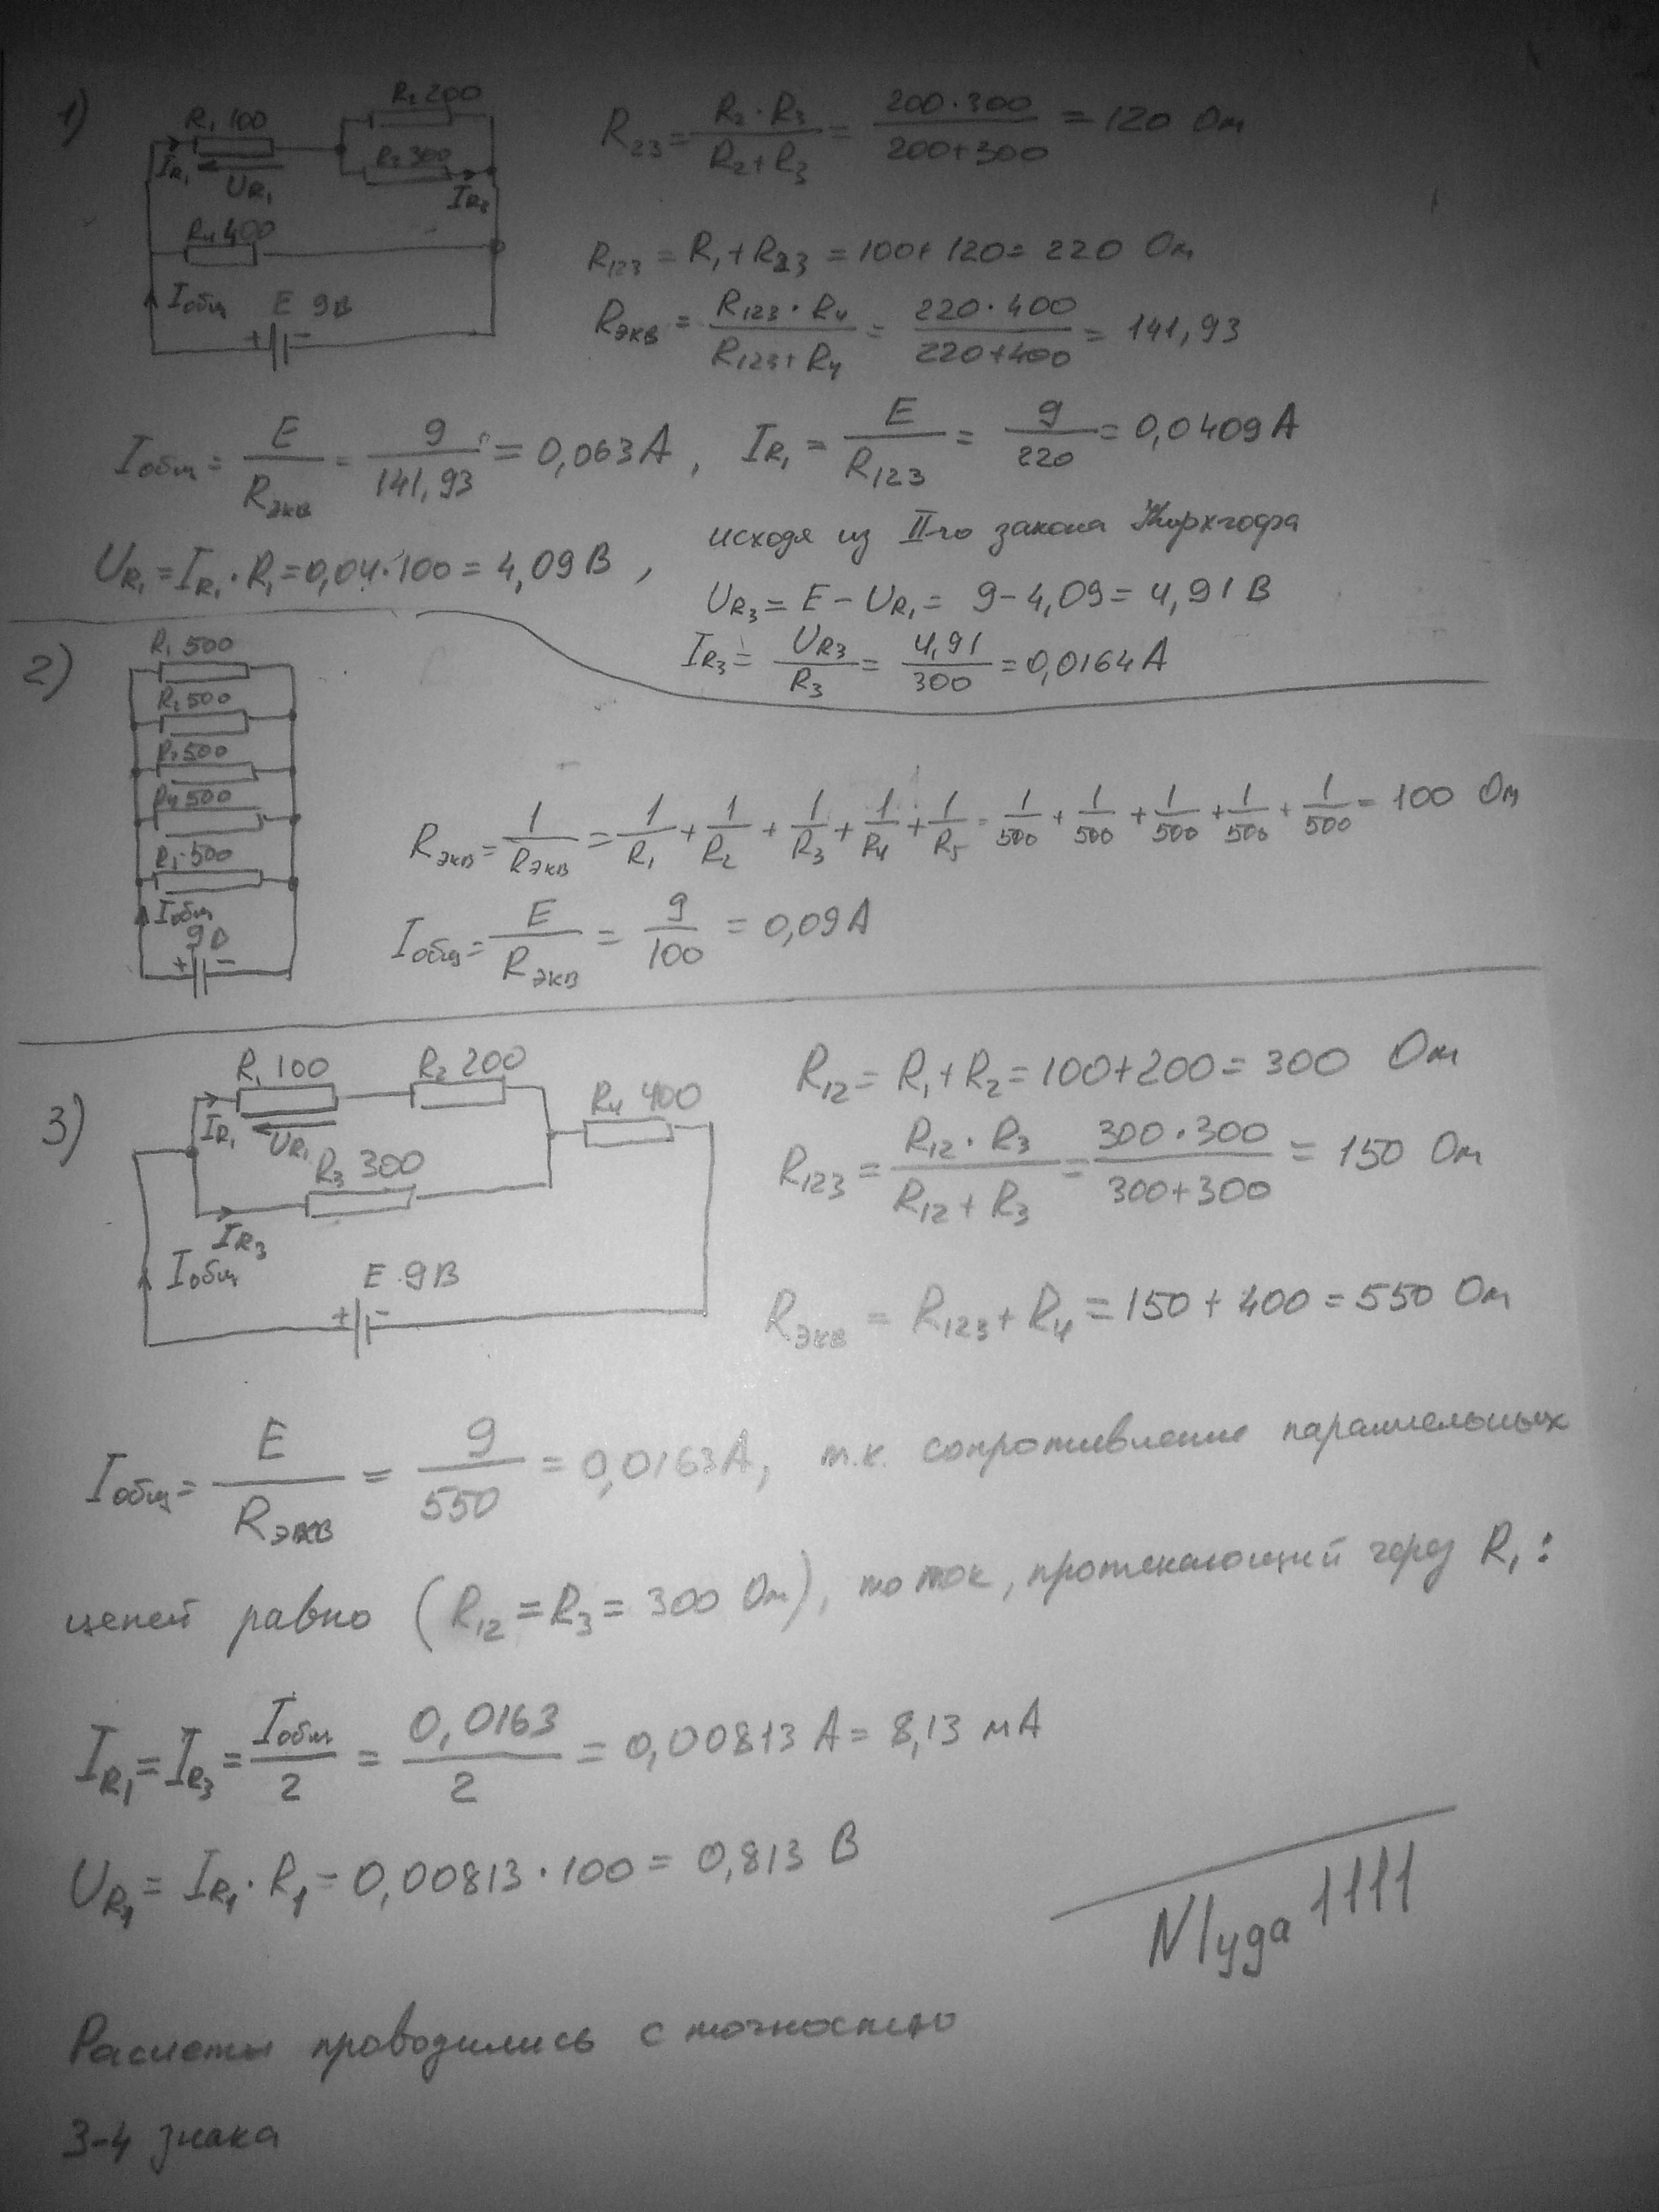 1)
R₁ 100
R₂ 200
R₃ 300
I_R₁
U_R₁
I_R₃
R₄ 400
Iобщ
E 9В
+ −
R₂₃ = (R₂·R₃)/(R₂+R₃) = (200·300)/(200+300) = 120 Ом
R₁₂₃ = R₁ + R₂₃ = 100 + 120 = 220 Ом
Rэкв = (R₁₂₃·R₄)/(R₁₂₃+R₄) = (220·400)/(220+400) = 141,93
Iобщ = E/Rэкв = 9/141,93 = 0,063 А, I_R₁ = E/R₁₂₃ = 9/220 = 0,0409 А
U_R₁ = I_R₁·R₁ = 0,04·100 = 4,09 В,
исходя из II-го закона Кирхгофа
U_R₃ = E − U_R₁ = 9 − 4,09 = 4,91 В
I_R₃ = U_R₃/R₃ = 4,91/300 = 0,0164 А
2)
R₁ 500
R₂ 500
R₃ 500
R₄ 500
500
Iобщ
9В
+ −
Rэкв = 1/Rэкв = 1/R₁ + 1/R₂ + 1/R₃ + 1/R₄ + 1/R₅ = 1/500 + 1/500 + 1/500 + 1/500 + 1/500 = 100 Ом
Iобщ = E/Rэкв = 9/100 = 0,09 А
3)
R₁ 100
R₂ 200
R₄ 400
I_R₁
U_R₁
R₃ 300
I_R₃
Iобщ
E 9В
+ −
R₁₂ = R₁ + R₂ = 100 + 200 = 300 Ом
R₁₂₃ = (R₁₂·R₃)/(R₁₂+R₃) = (300·300)/(300+300) = 150 Ом
Rэкв = R₁₂₃ + R₄ = 150 + 400 = 550 Ом
Iобщ = E/Rэкв = 9/550 = 0,0163 А, т.к. сопротивление параллельных
цепей равно (R₁₂ = R₃ = 300 Ом), то ток, протекающий через R₁:
I_R₁ = I_R₃ = Iобщ/2 = 0,0163/2 = 0,00813 А = 8,13 мА
U_R₁ = I_R₁·R₁ = 0,00813·100 = 0,813 В
N1уда1111
Расчеты проводились с точностью
3-4 знака